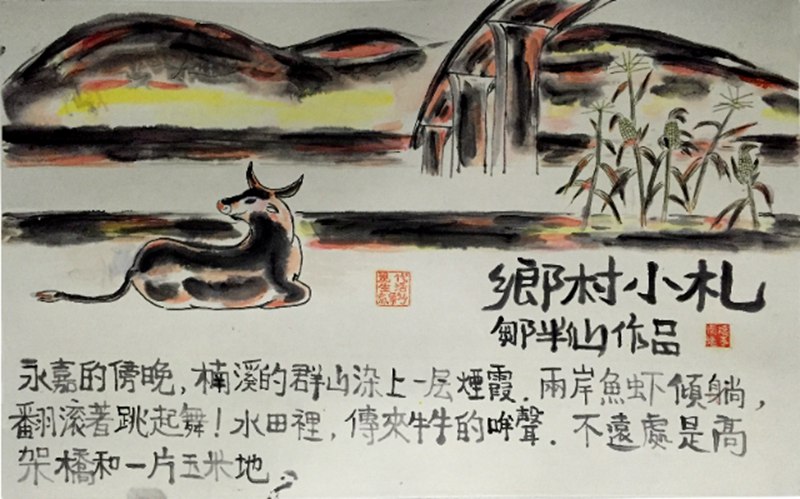 鄉村小札
鄒半仙作品
永嘉的傍晚,楠溪的群山染上一层煙霞.兩岸魚虾傾躺,
翻滚著跳起舞!水田裡,傳來牛牛的哞聲.不遠處是高
架橋和一片玉米地